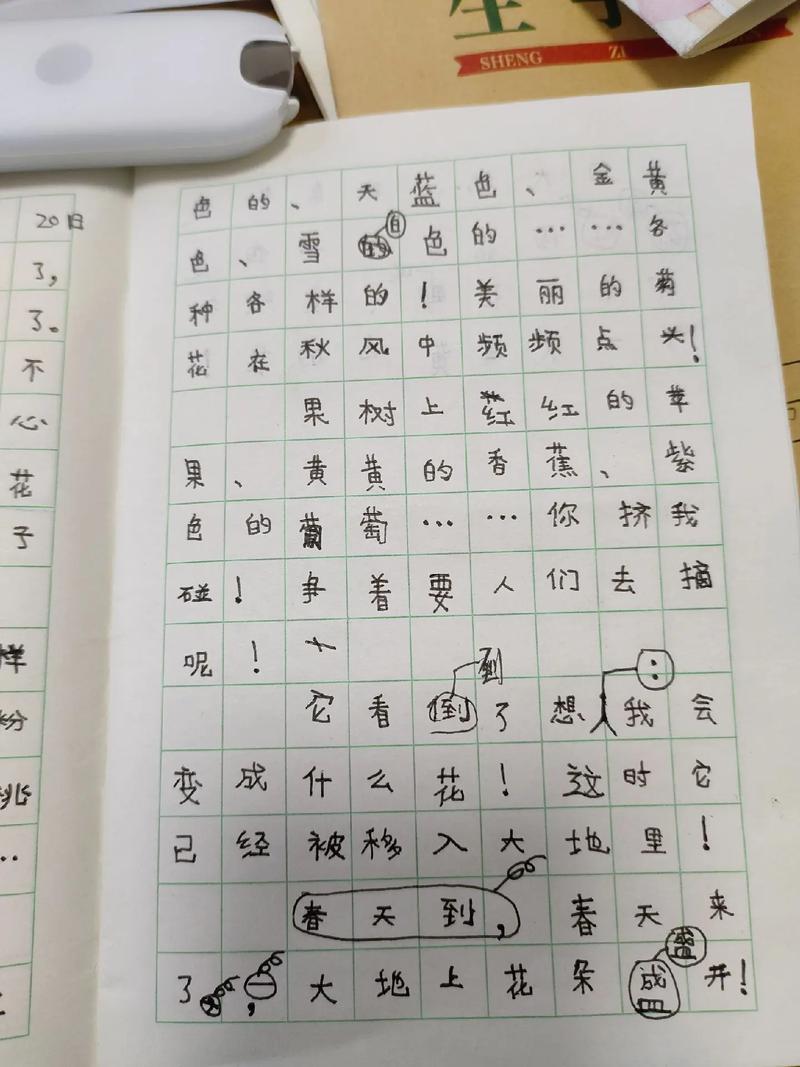 生
SHENG ZI
20日
了,
了。
不
心
花
子
样
粉
桃
色的、天蓝色、金黄
色、雪白色的……各
种各样的!美丽的菊
花在秋风中频频点头!
果树上红红的苹
果、黄黄的香蕉、紫
色的葡萄……你挤我
碰!争着要人们去摘
呢!
到
它看倒了想:我会
变成什么花!这时它
已经被移入大地里!
春天到,春天来
盛
了,大地上花朵盛开!